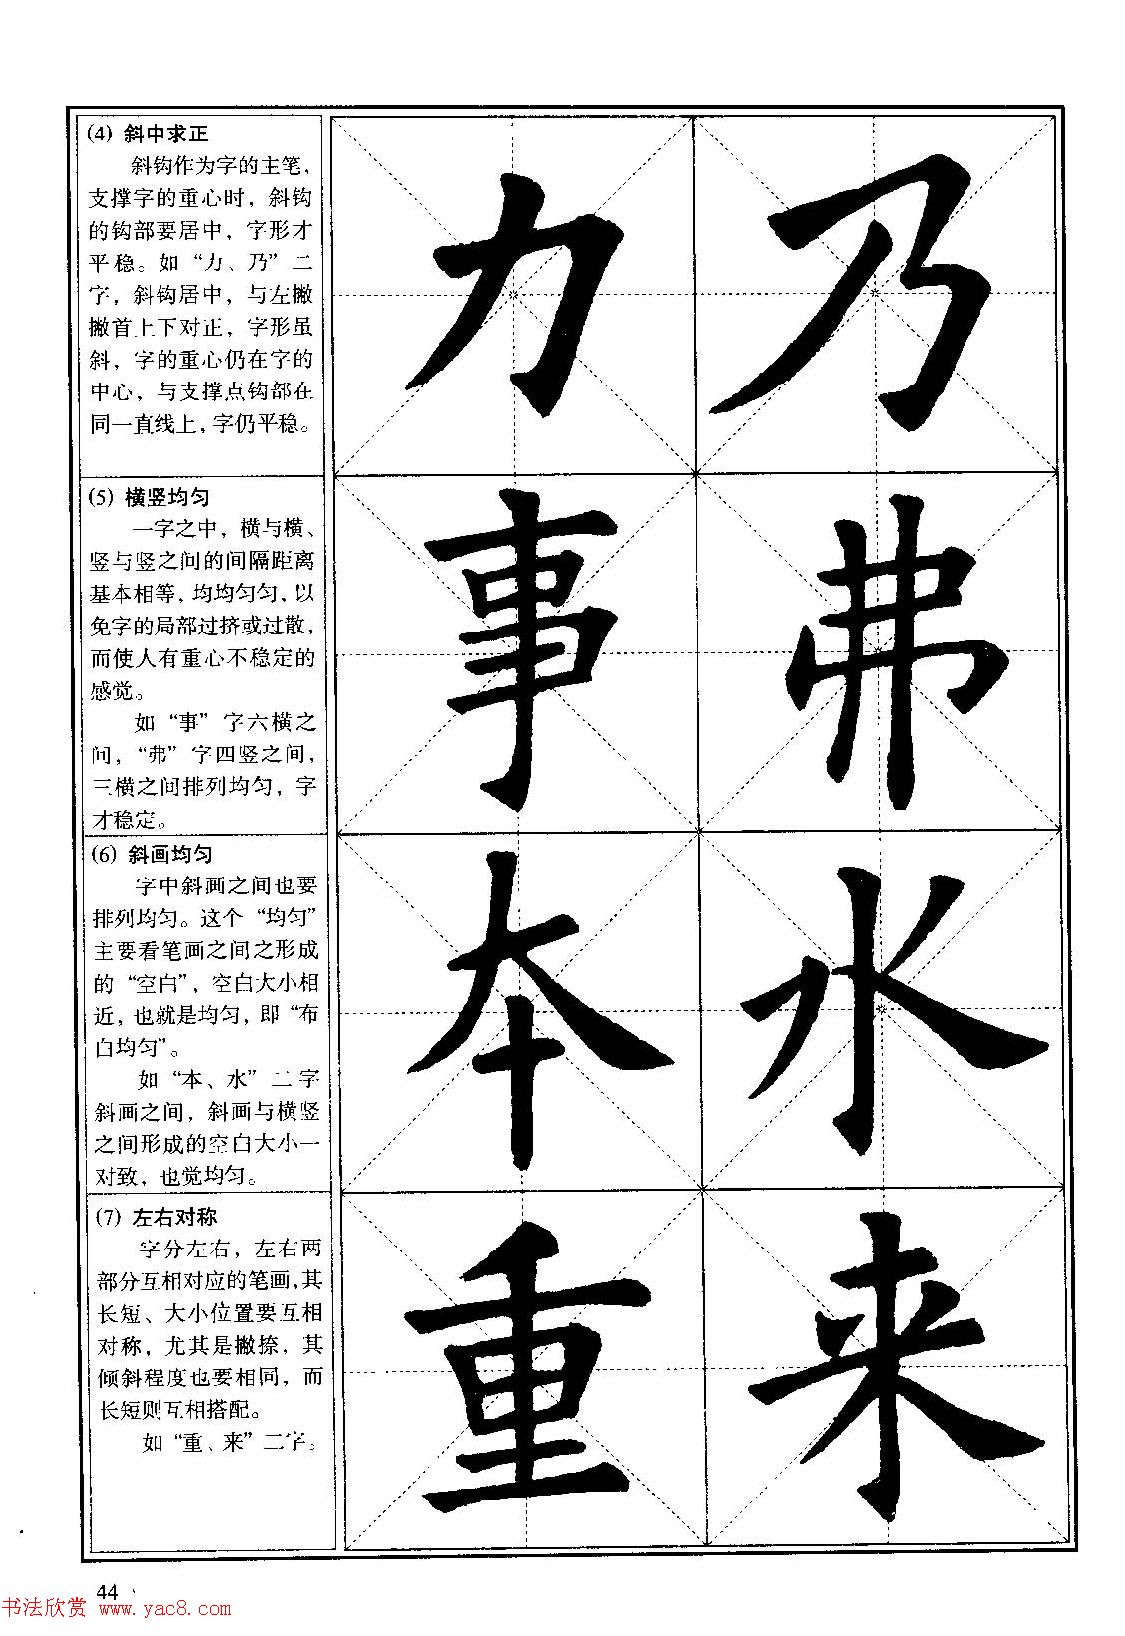 (4) 斜中求正
斜钩作为字的主笔，
支撑字的重心时，斜钩
的钩部要居中，字形才
平稳。如“力、乃”二
字，斜钩居中，与左撇
撇首上下对正，字形虽
斜，字的重心仍在字的
中心，与支撑点钩部在
同一直线上，字仍平稳。
力 乃
(5) 横竖均匀
一字之中，横与横、
竖与竖之间的间隔距离
基本相等，均均匀匀，以
免字的局部过挤或过散，
而使人有重心不稳定的
感觉。
如“事”字六横之
间，“弗”字四竖之间，
三横之间排列均匀，字
才稳定。
事 弗
(6) 斜画均匀
字中斜画之间也要
排列均匀。这个“均匀”
主要看笔画之间之形成
的“空白”，空白大小相
近，也就是均匀，即“布
白均匀”。
如“本、水”二字
斜画之间，斜画与横竖
之间形成的空白大小一
对致，也觉均匀。
本 水
(7) 左右对称
字分左右，左右两
部分互相对应的笔画，其
长短、大小位置要互相
对称，尤其是撇捺，其
倾斜程度也要相同，而
长短则互相搭配。
如“重、来”二字。
重 来
44
书法欣赏 www.yac8.com